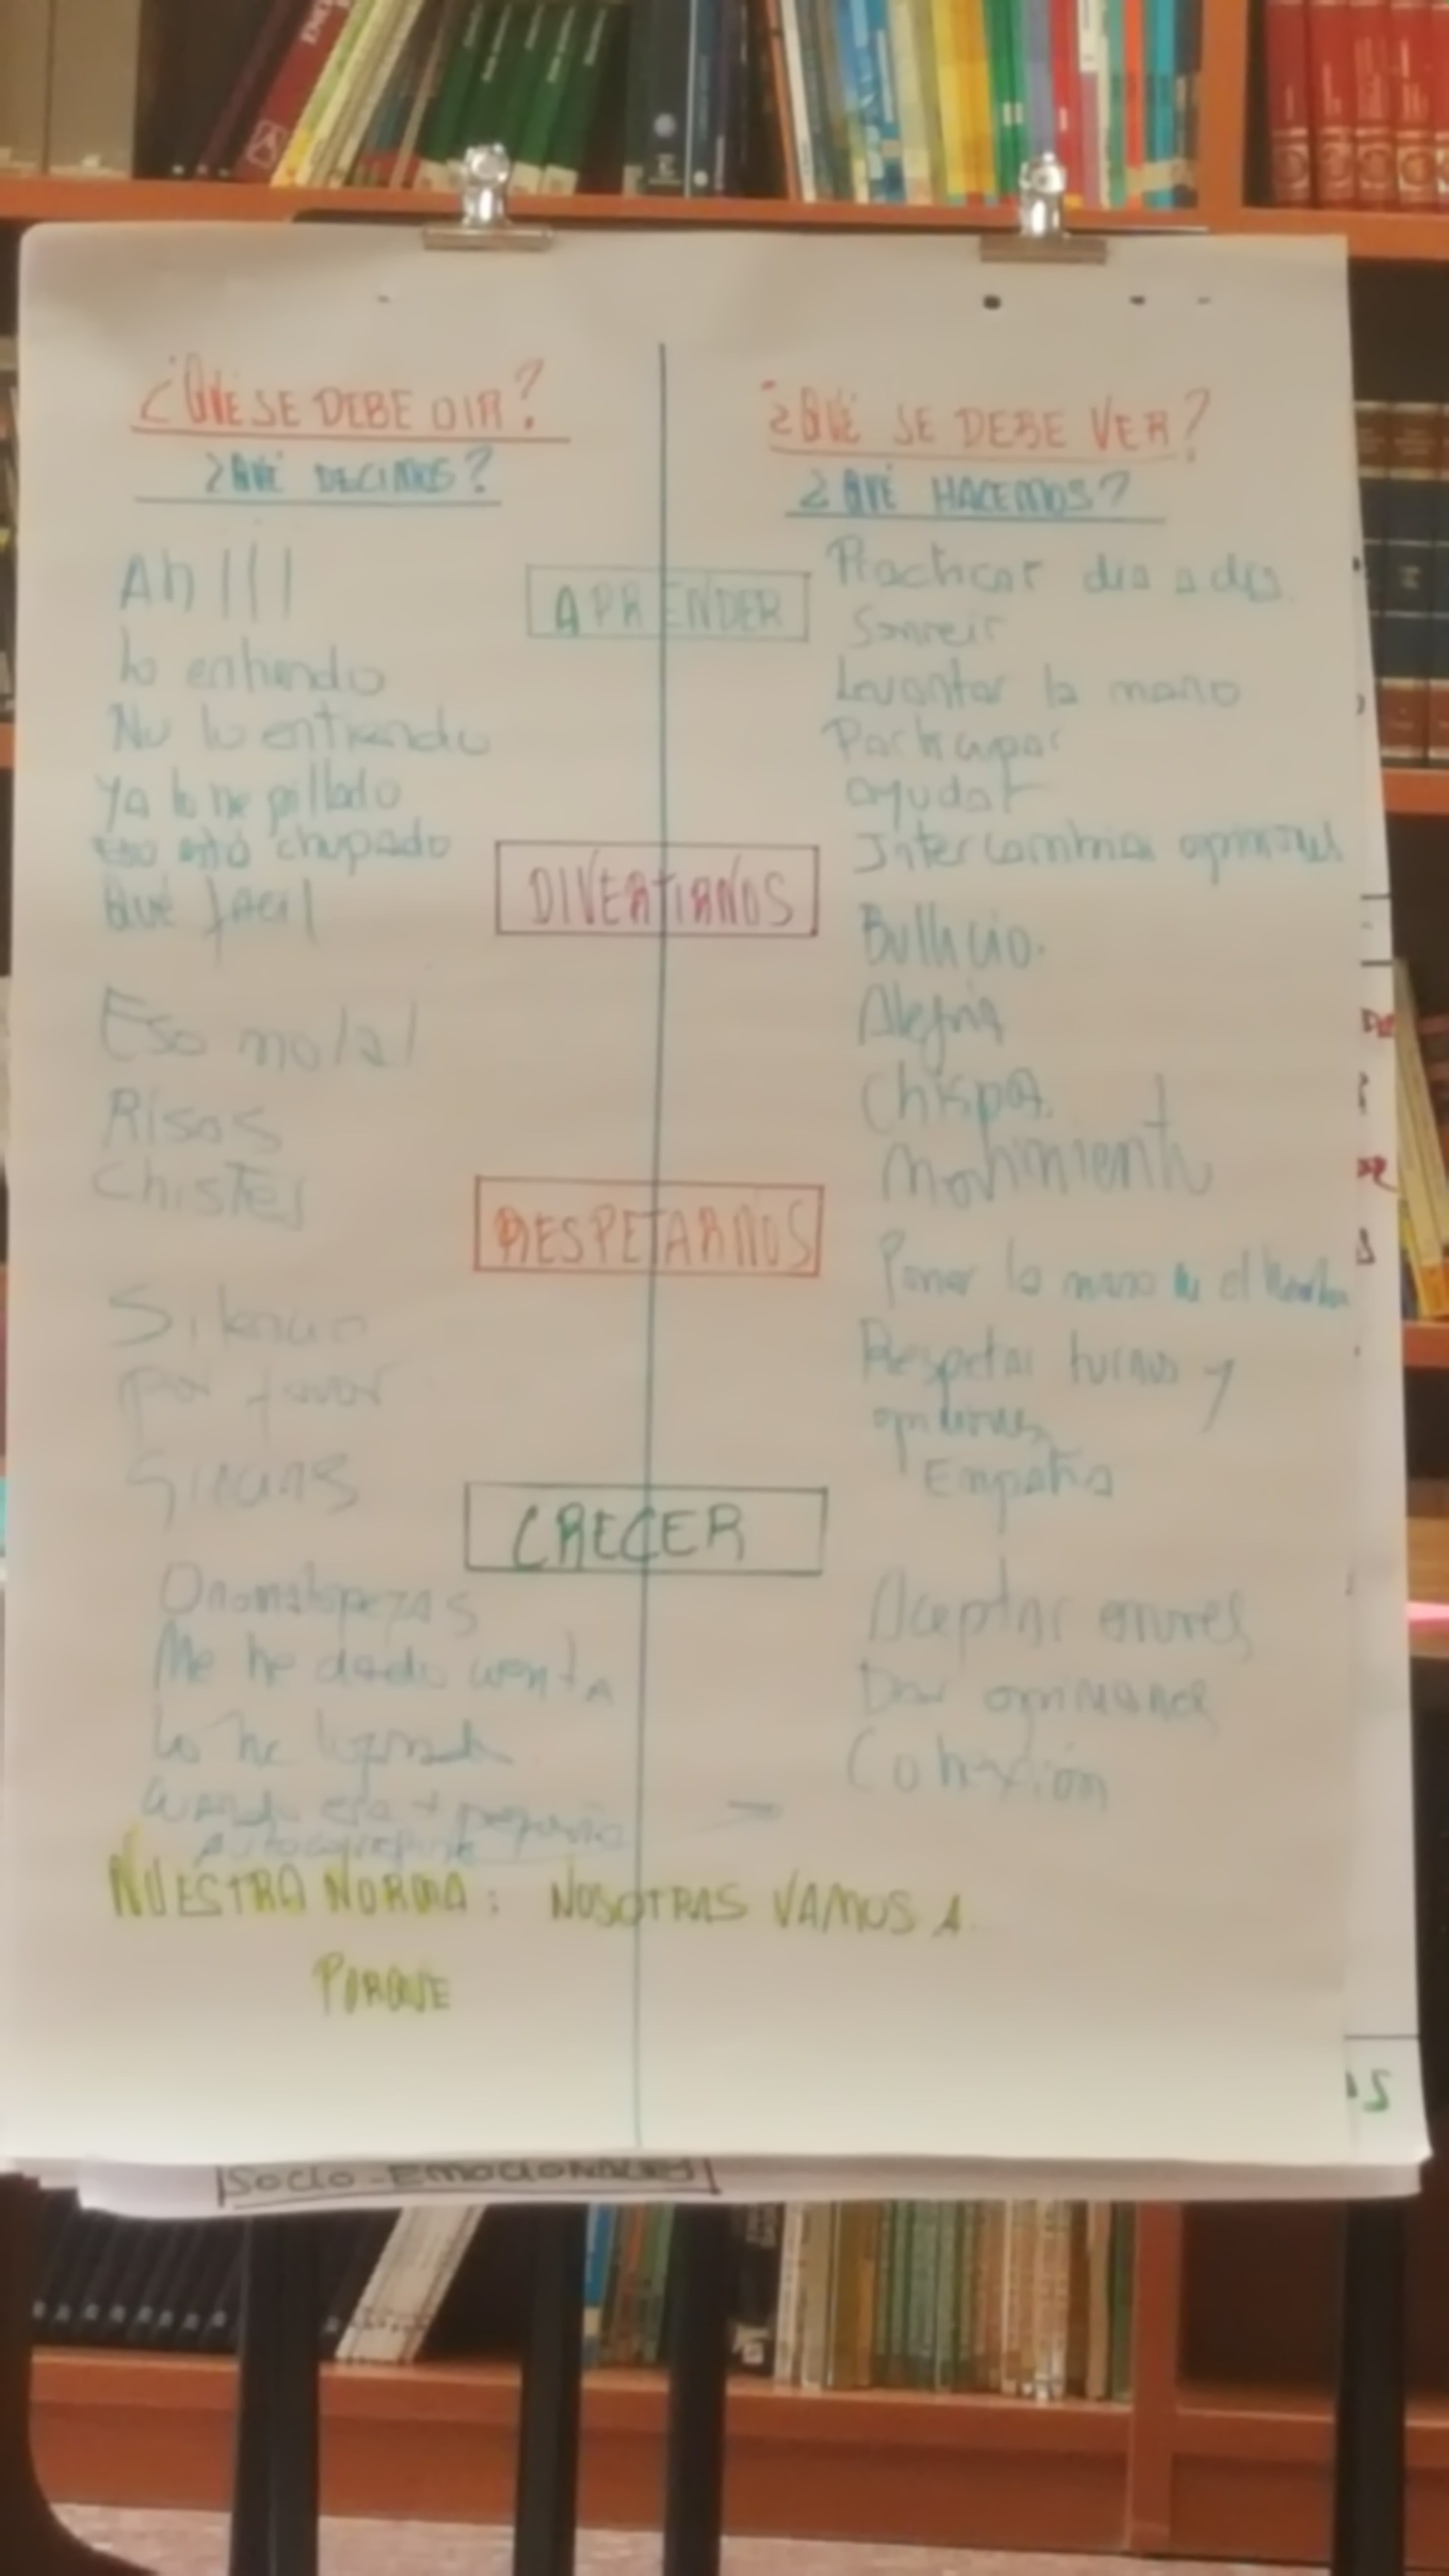 ¿QUÉ SE DEBE OIR?
¿QUÉ DECIMOS?
Ah!!!
Lo entiendo
No lo entiendo
Ya lo he pillado
Eso está chupado
Qué fácil
Eso mola!
Risas
Chistes
Silencio
por favor
Gracias
Onomatopeyas
Me he dado cuenta
Lo he logrado
Cuando era + pequeño
APRENDER
DIVERTIRNOS
RESPETARNOS
CRECER
¿QUÉ SE DEBE VER?
¿QUÉ HACEMOS?
Practicar día a día.
Sonreir
Levantar la mano
Participar
ayudar
Intercambiar opiniones
Bullicio.
Alegría
Chispa.
Movimiento
Poner la mano en el hombro
Respetar turnos y
opiniones
Empatía
Aceptar errores
Dar opiniones
Cohexión
NUESTRA NORMA: NOSOTRAS VAMOS A
PORQUE
SOCIO-EMOCIONALES